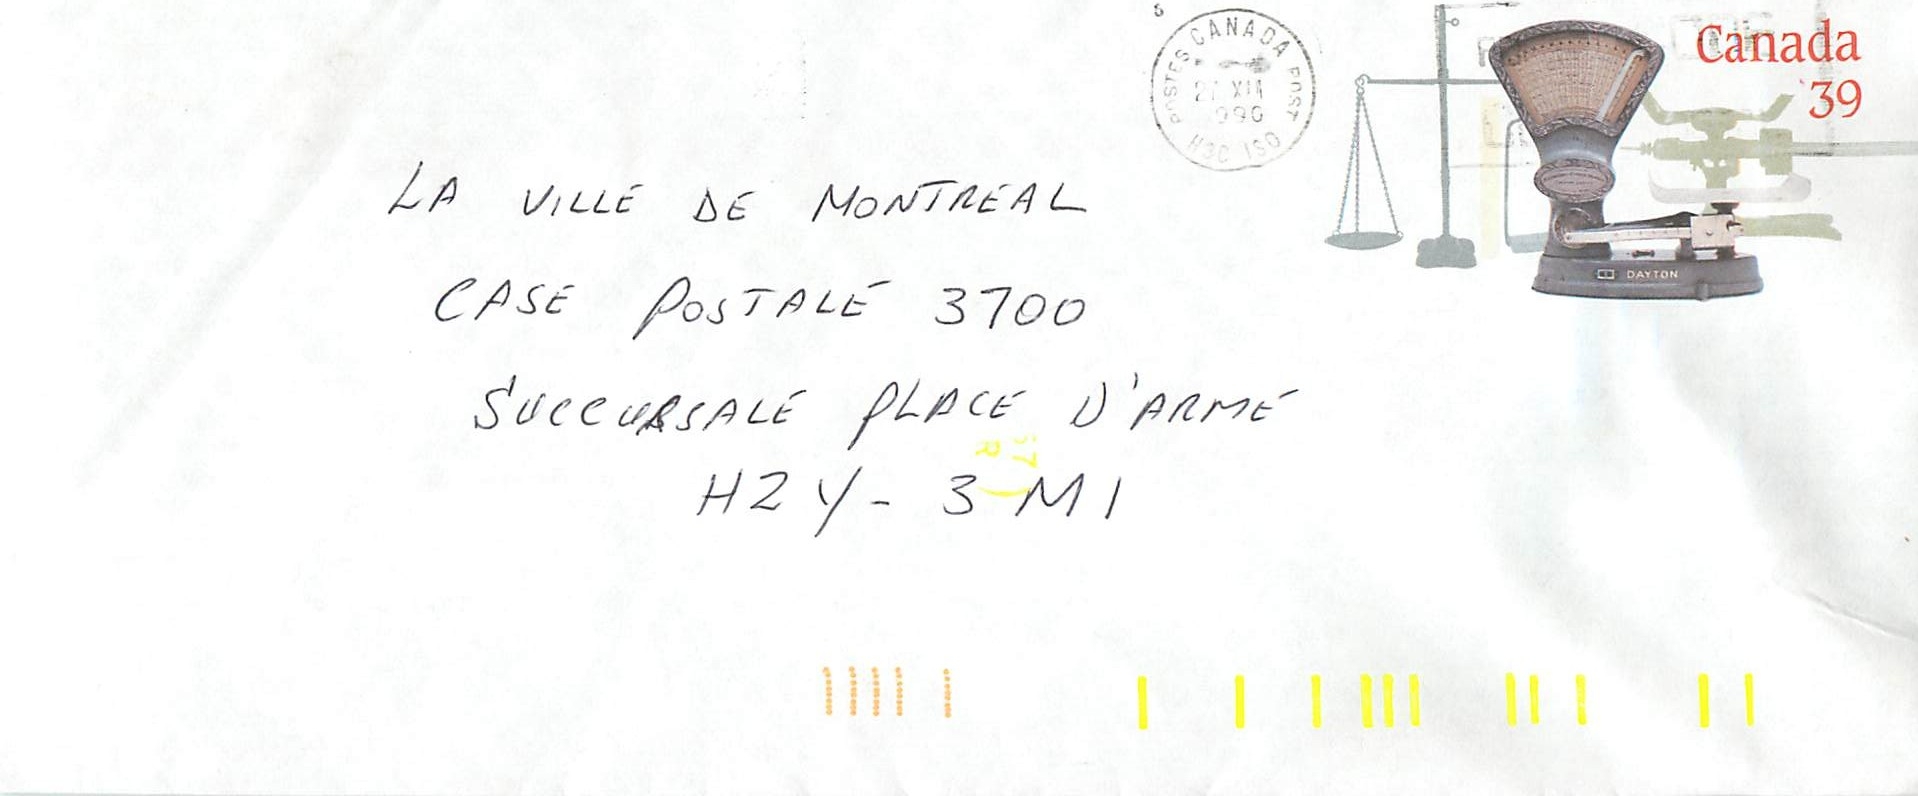 Canada
39
POSTES CANADA POST
XII
H3C 1S0
DAYTON
LA VILLE DE MONTREAL
CASE POSTALE 3700
SUCCURSALE PLACE D'ARME
H2Y-3M1
57
R)